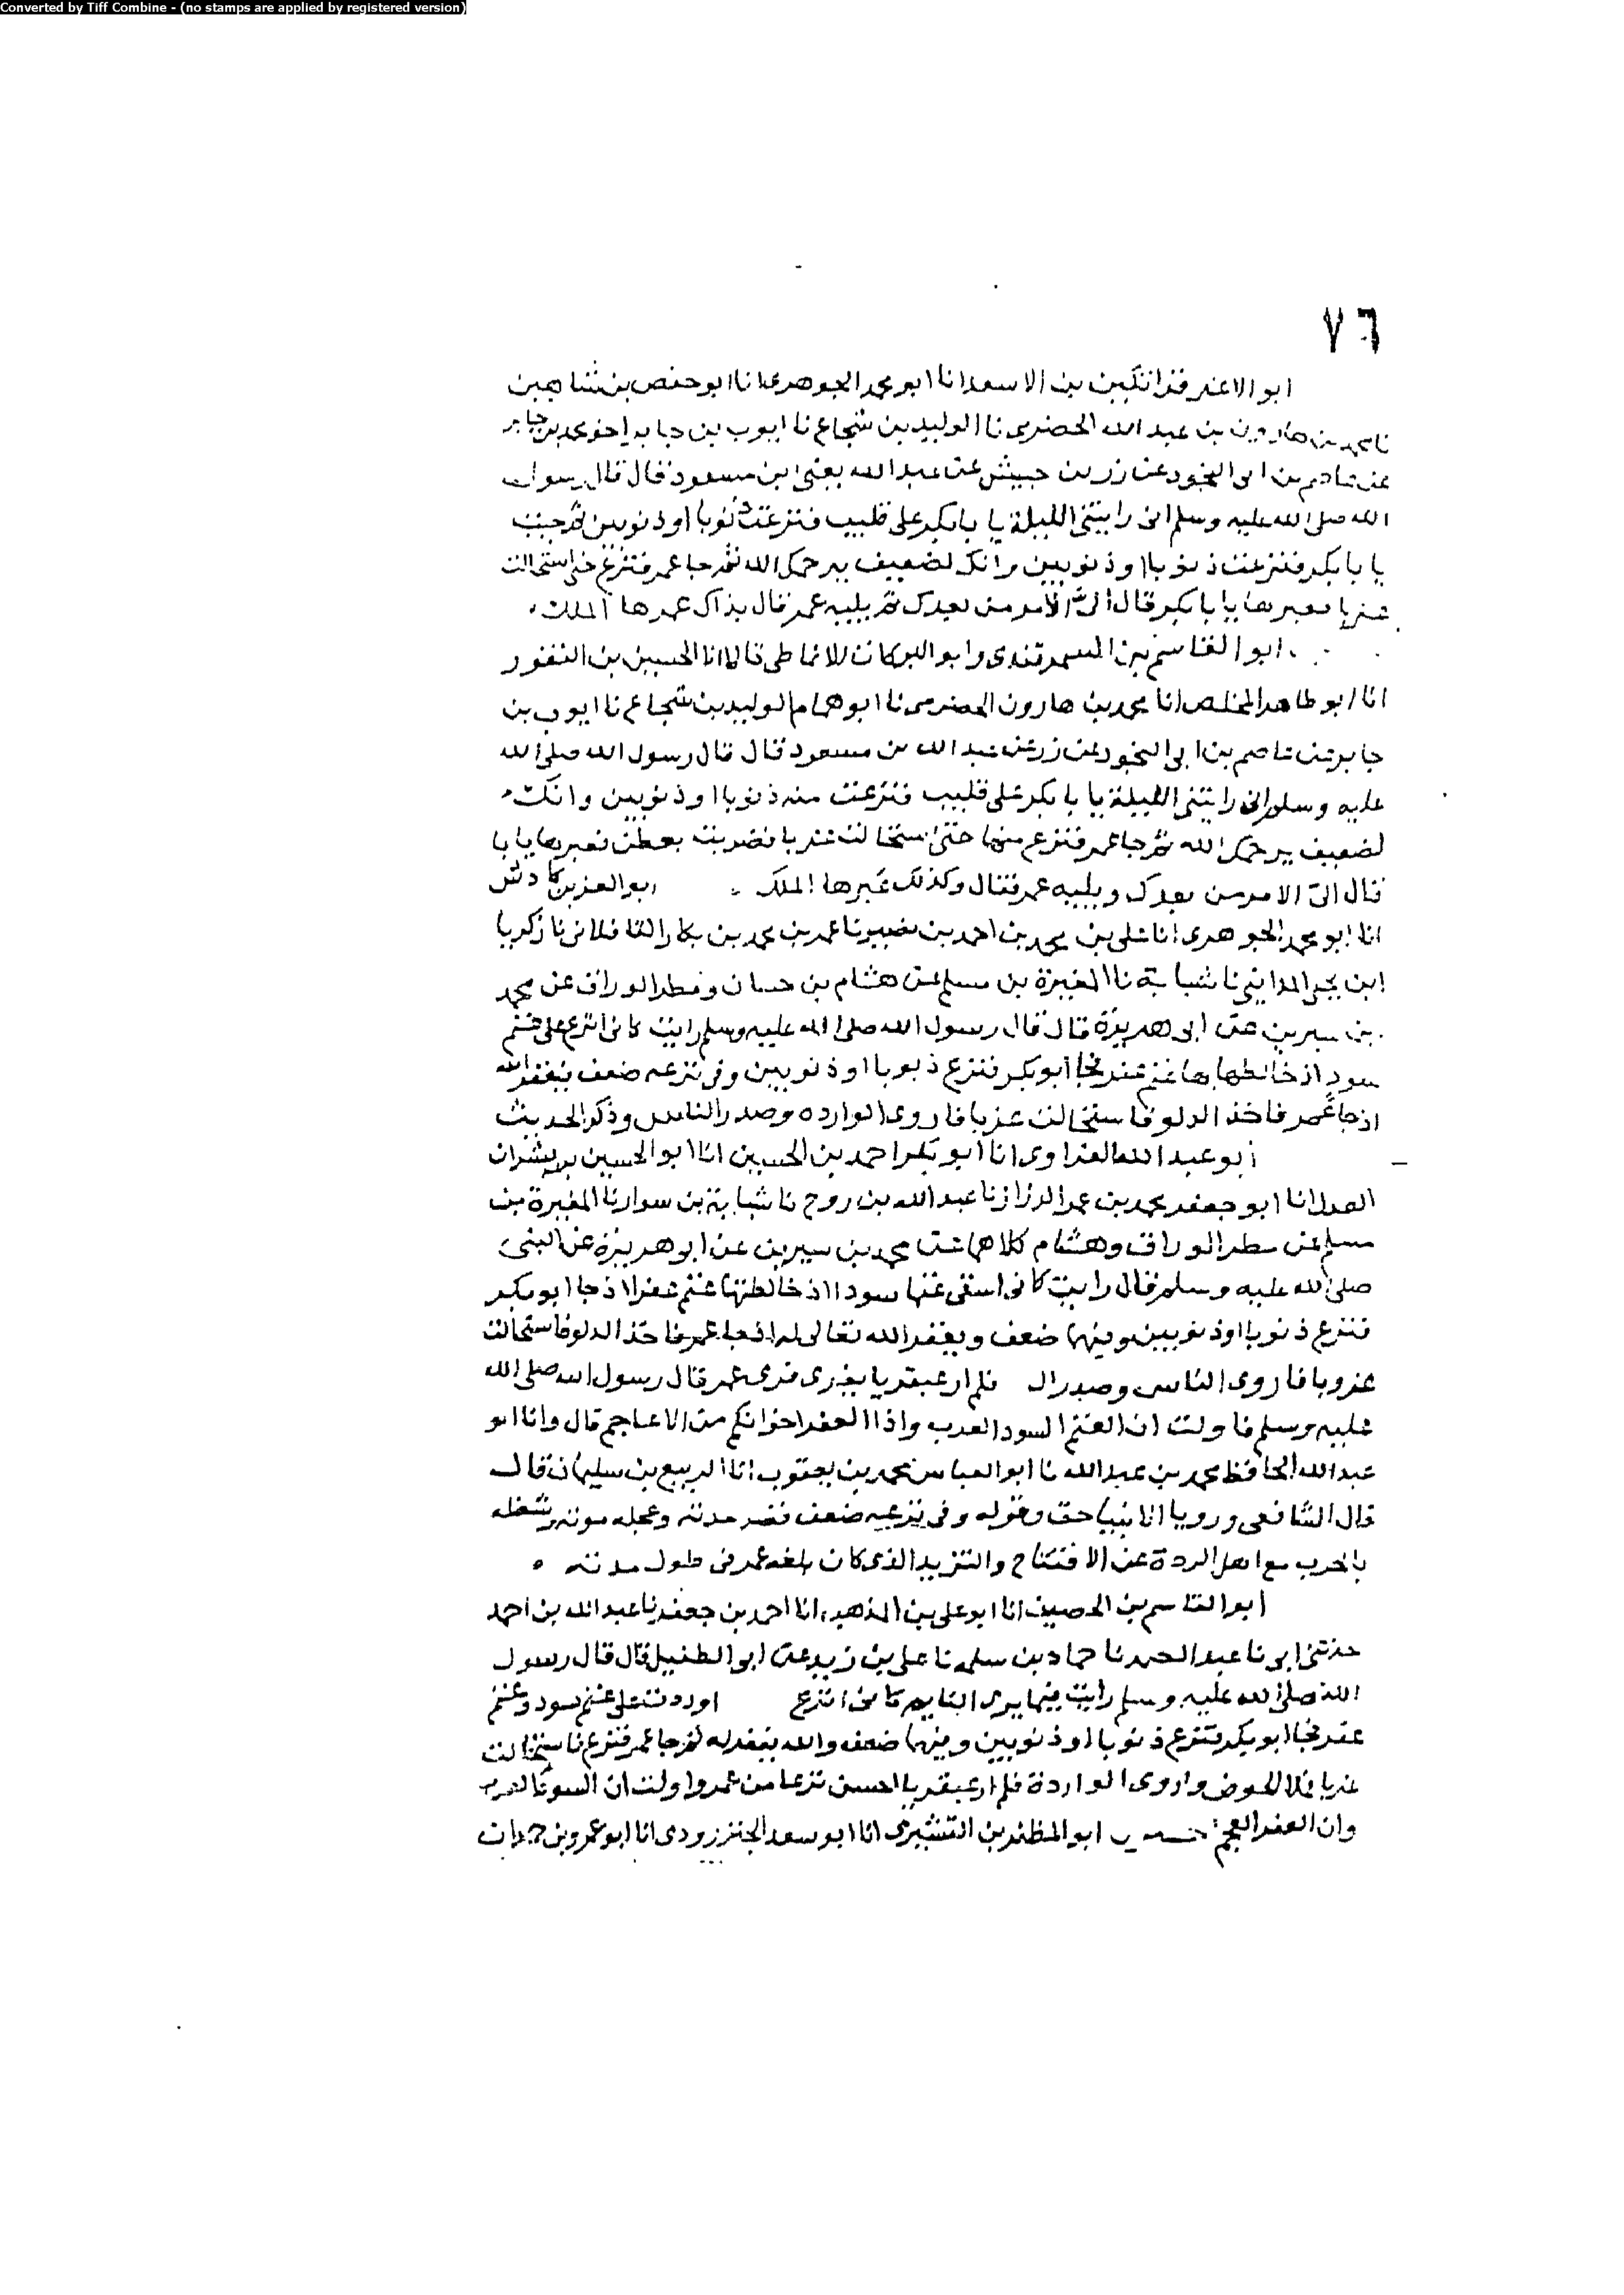 Converted by Tiff Combine - (no stamps are applied by registered version)
٧٦
ابو الاعز قراتكين بن الاسعد انا ابو محمد الجوهري انا ابو حفص بن شاهين
نا محمد بن هارون بن عبد الله الحضرمي نا الوليد بن شجاع نا ايوب بن جابر اخو محمد بن جابر
عن عاصم بن ابي النجود عن زر بن حبيش عن عبد الله يعني ابن مسعود قال قال رسول
الله صلى الله عليه وسلم اني رايتني الليلة يا با بكر على قليب فنزعت ذنوبا او ذنوبين ثم جيت
يا با بكر فنزعت ذنوبا او ذنوبين وانك لضعيف يرحمك الله ثم جا عمر فنزع حتى استحالت
غربا فعبرها يا با بكر قال الي الامر من بعدك ثم يليه عمر قال بذاك عبرها الملك
ابو القاسم بن السمرقندي وابو البركات الانماطي قالا انا الحسين بن النقور
انا ابو طاهر المخلص انا محمد بن هارون الحضرمي نا ابو همام الوليد بن شجاع نا ايوب بن
جابر عن عاصم بن ابي النجود عن زر عن عبد الله بن مسعود قال قال رسول الله صلى الله
عليه وسلم اني رايتني الليلة يا با بكر على قليب فنزعت منه ذنوبا او ذنوبين وانك
لضعيف يرحمك الله ثم جا عمر فنزع منها حتى استحالت غربا فضربت بعطن فعبرها يا با
قال الي الامر من بعدك ويليه عمر فقال وكذلك عبرها الملك ابو العز بن كادش
انا ابو محمد الجوهري انا علي بن محمد بن احمد بن نصير نا عمر بن محمد بن بكار القافلاني نا زكريا
ابن يحيى المدايني نا شبابة نا المغيرة بن مسلم عن هشام بن حسان ومطر الوراق عن محمد
بن سيرين عن ابي هريرة قال قال رسول الله صلى الله عليه وسلم رايت كاني انزع على غنم
سود اذ خالطها غنم عفر فجا ابو بكر فنزع ذنوبا او ذنوبين وفي نزعه ضعف يغفر الله
اذ جا عمر فاخذ الدلو فاستحالت غربا فاروى الواردة وصدر الناس وذكر الحديث
ابو عبد الله الفراوي انا ابو بكر احمد بن الحسين انا ابو الحسين بن بشران
العدل انا ابو جعفر محمد بن عمر الرزاز نا عبد الله بن روح نا شبابة بن سوار نا المغيرة بن
مسلم عن مطر الوراق وهشام كلاهما عن محمد بن سيرين عن ابو هريرة عن النبي
صلى الله عليه وسلم قال رايت كاني اسقي غنما سودا اذ خالطتها غنم عفر اذ جا ابو بكر
فنزع ذنوبا او ذنوبين وفيهما ضعف ويغفر الله تعالى له اذ جا عمر فاخذ الدلو فاستحالت
غروبا فاروى الناس وصدر ال فلم ار عبقريا يفري فري عمر قال رسول الله صلى الله
عليه وسلم فاولت ان الغنم السود العرب واذا العفر اخوانكم من الاعاجم قال وانا ابو
عبد الله الحافظ محمد بن عبد الله نا ابو العباس محمد بن يعقوب انا الربيع بن سليمان قال
قال الشافعي ورويا الانبيا حق وقوله وفي نزعه ضعف قصر مدته وعجله موته وشغله
بالحرب مع اهل الردة عن الافتتاح والتزيد الذي كان بلغه عمر في طول مدته
ابو القاسم بن الحصين انا ابو علي بن المذهب انا احمد بن جعفر نا عبد الله بن احمد
حدثني ابو نا عبد الصمد نا حماد بن سلمه نا علي بن زيد عن ابو الطفيل قال قال رسول
الله صلى الله عليه وسلم رايت فيما يرى النايم كاني انزع اوردت على غنم سود وغنم
عفر فجا ابو بكر فنزع ذنوبا او ذنوبين وفيهما ضعف والله يغفر له ثم جا عمر فنزع فاستحالت
غربا فملا الحوض واروى الواردة فلم ار عبقريا احسن نزعا من عمر واولت ان السود العرب
وان العفر العجم ابو المظفر بن القشيري انا ابو سعد الجنزرودي انا ابو عمرو بن حمدان